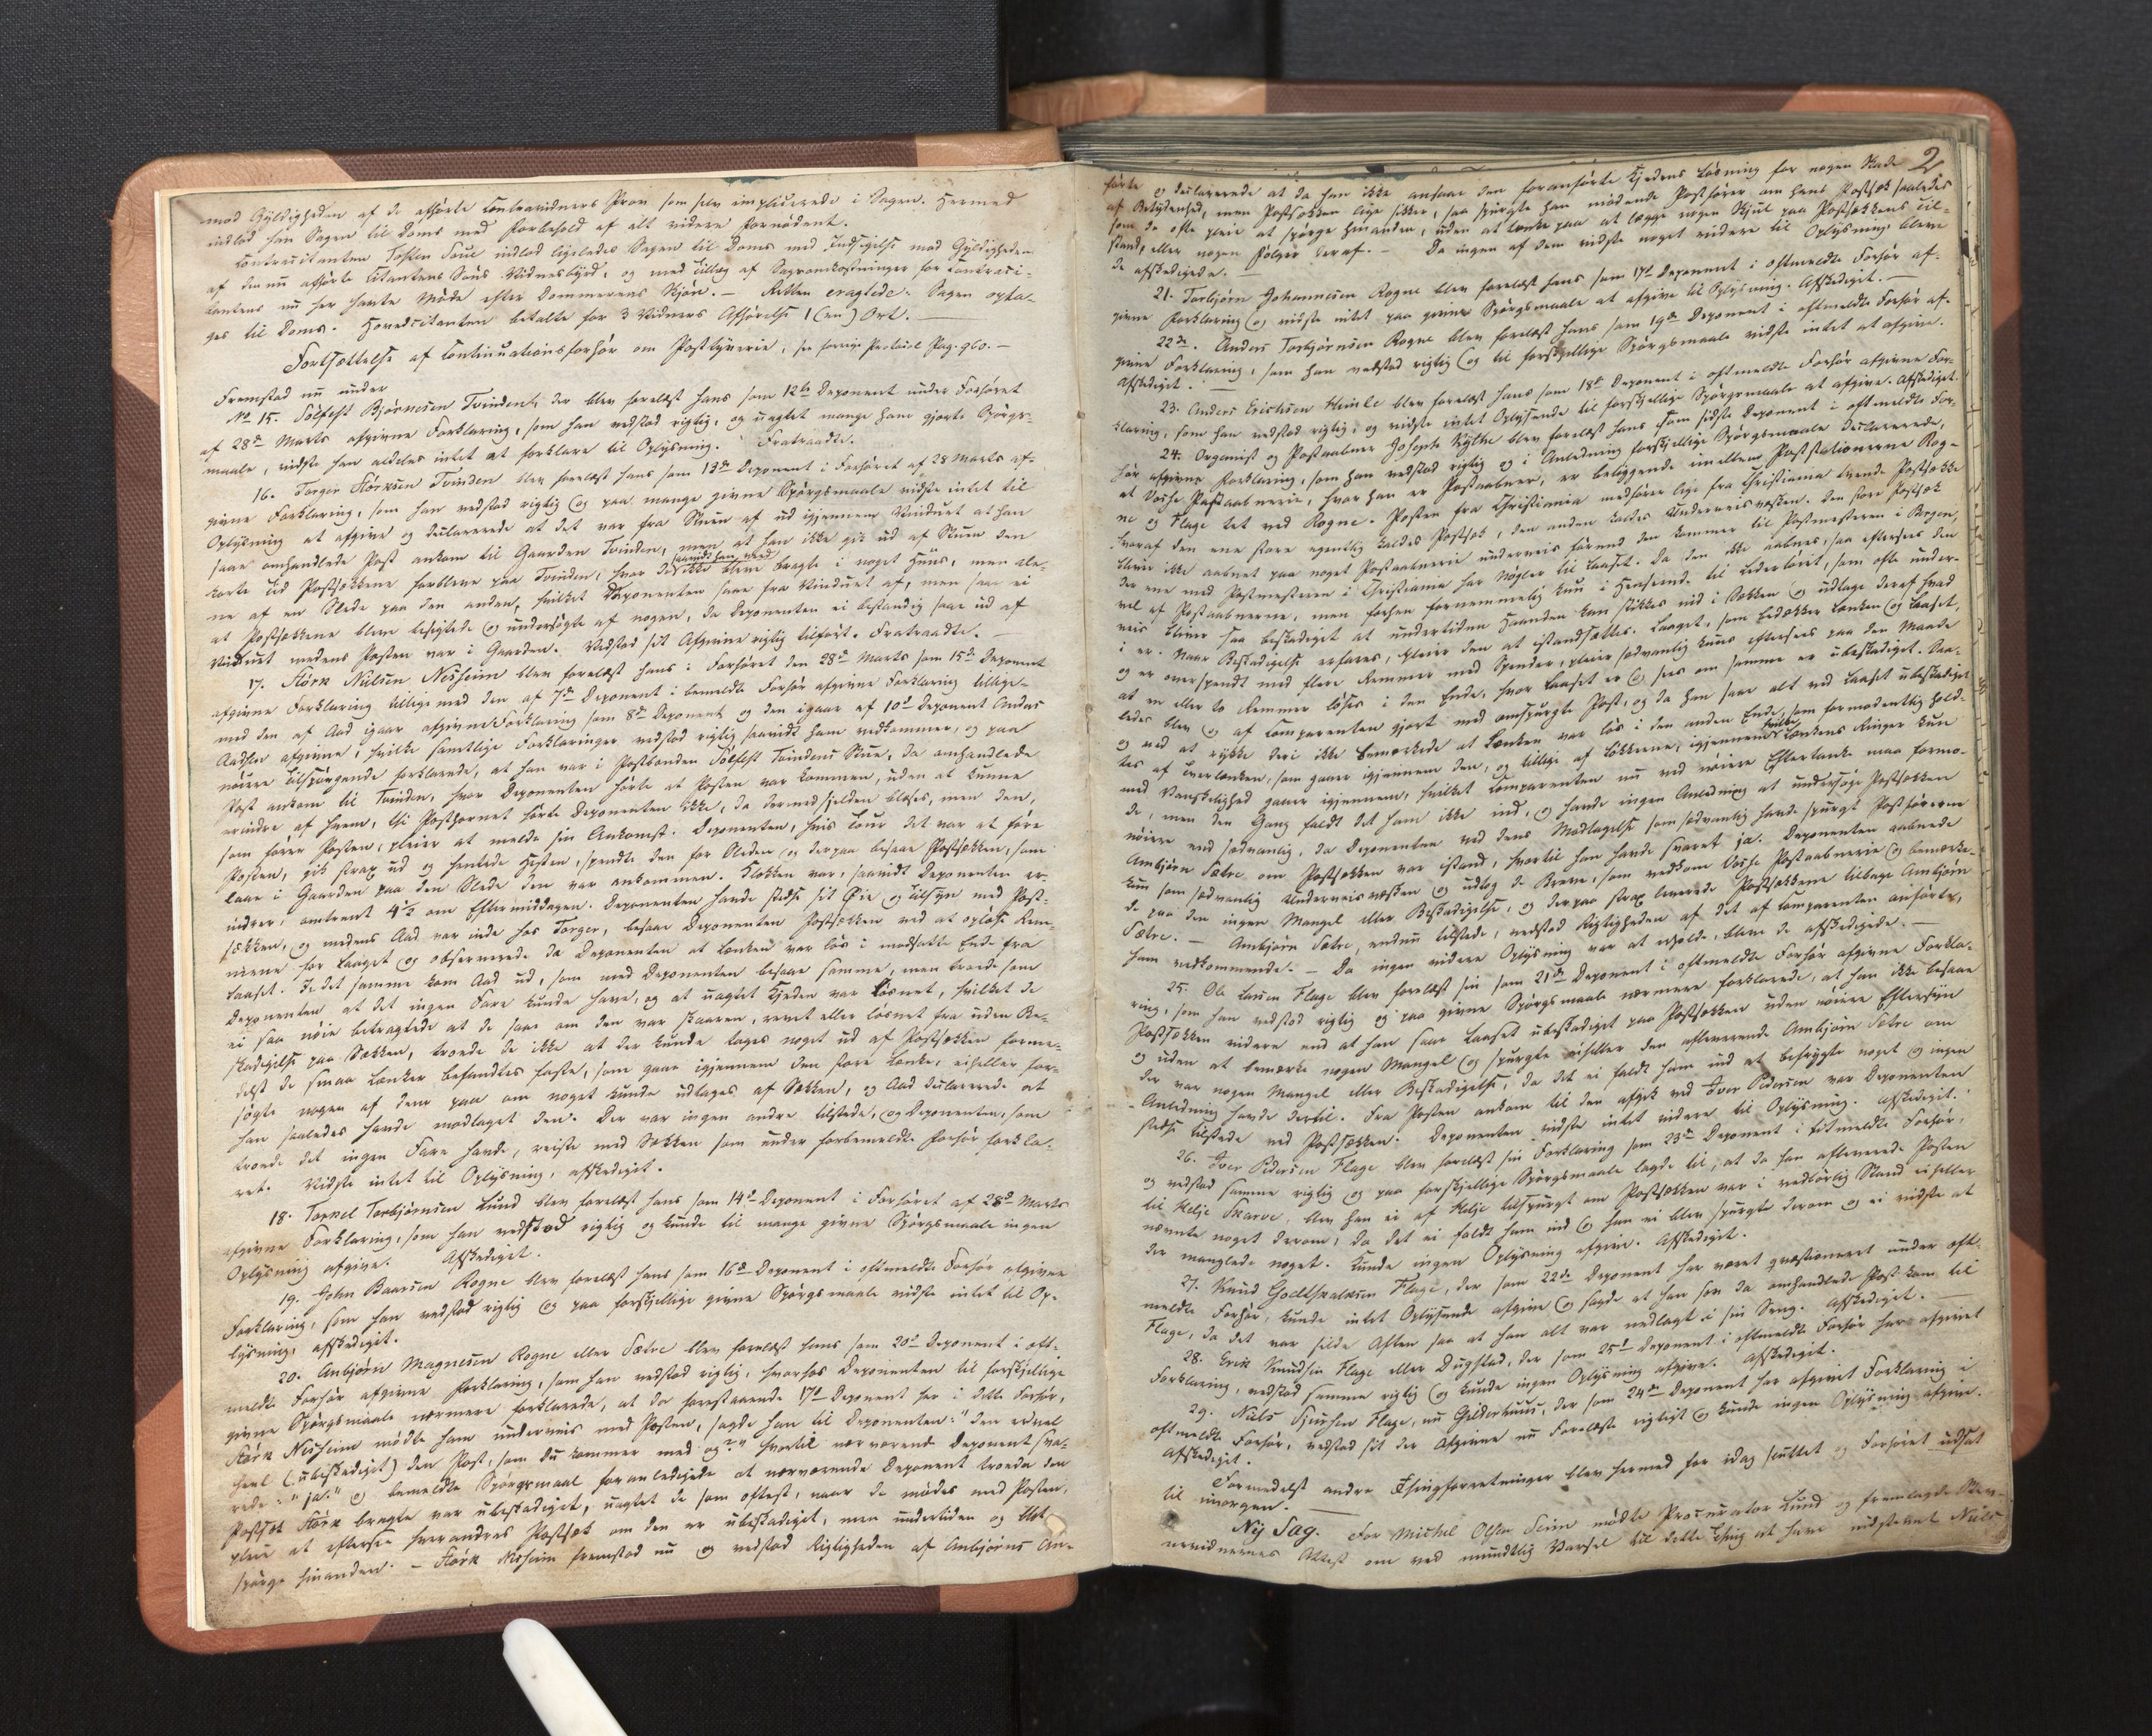 mod Gyldigheden af de afhørte Contravidners Prov som selv implicerede i Sagen. Hermed
indlod han Sagen til Doms med Forbehold af alt videre fornødent.
Contracitanten Tosten Tvil indlod ligeledes Sagen til Doms med Indsigelse mod Gyldigheden
af de nu afhørte Citantens Søns Vidnesbyrd, og med Tillæg af Sagsomkostninger for Contraci-
tantens nu her hente Møde efter Dommerens Skjøn. — Retten eragtede. Sagen opta-
ges til Doms. Hovedcitanten betalte for 3 Vidners Afhørelse 1 (en) Ort. —
Fortsættelse af Continuationsforhør om Posttyverie, see forrige Protocol Pag. 960. —
Fremstod nu under
No 15. Sølfest Bjørnesen Tvinden, der blev forelæst hans som 12te Deponent under Forhøret
af 28de Marts afgivne Forklaring, som han vedstod rigtig, og uagtet mange ham gjorte Spørgs-
maale, vidste han aldeles intet at forklare til Oplysning. Fratraadte.
16. Torger Størksen Tvinden blev forelæst hans som 13de Deponent i Forhøret af 28 Marts af-
givne Forklaring, som han vedstod rigtig og paa mange givne Spørgsmaale vidste intet til
Oplysning at afgive og declarerede at det var fra Stuen af ud igjennem Vinduet at han
saae omhandlede Post ankom til Gaarden Tvinden, men at han ikke gik ud af Stuen den
korte Tid Postsækkene forbleve paa Tvinden, hvor de saavidt han veed ikke bleve bragte i noget Huus, men ale-
ne af en Slede paa den anden, hvilket Deponenten saae fra Vinduet af, men saae ei
at Postsækkene bleve besigtede og undersøgte af nogen, da Deponenten ei bestandig saae ud af
Vinduet medens Posten var i Gaarden. Vedstod sit Afgivne rigtig tilført. Fratraadte. —
17. Størk Nielsen Nesheim blev forelæst hans i Forhøret den 28de Marts som 15de Deponent
afgivne Forklaring tillige med den af 7de Deponent i bemeldte Forhør afgivne Forklaring tillige-
med den af Aad igaar afgivne Forklaring som 8de Deponent og den igaar af 10de Deponent Anders
Aadsen afgivne, hvilke samtlige Forklaringer vedstod rigtig saavidt ham vedkommer, og paa
nøiere Tilspørgende forklarede, at han var i Postbonden Sølfest Tvindens Stue, da omhandlede
Post ankom til Tvinden, hvor Deponenten hørte at Posten var kommen, uden at kunne
erindre af hvem, thi Posthornet hørte Deponenten ikke, da dermed sjelden blæses, men den,
som fører Posten, pleier at melde sin Ankomst. Deponenten, hvis Tour det var at føre
Posten, gik strax ud og hentede Hesten, spendte den for Sleden og derpaa besaae Postsækken, som
laae i Gaarden paa den Slede den var ankommen. Klokken var, saavidt Deponenten er-
indrer, omtrent 4½ om Eftermiddagen. Deponenten havde stedse sit Øie og Tilsyn med Post-
sækken, og medens Aad var inde hos Torger, besaae Deponenten Postsækken ved at opløse Rem-
mene for Laaget og observerede da Deponenten at Lænken var løs i modsatte Ende fra
Laaset. I det samme kom Aad ud, som med Deponenten besaae samme, men troede som
Deponenten at det ingen Fare kunde have, og at uagtet Kjeden var løsnet, hvilket de
ei saa nøie betragtede at de saae om den var skaaren, revet eller løsnet fra uden Be-
skadigelse paa Sækken, troede de ikke at der kunde tages noget ud af Postsækken forme-
delst de smaa Lænker befandtes faste, som gaae igjennem den store Lænke, eiheller for-
søgte nogen af dem paa om noget kunde udtages af Sækken, og Aad declarerede at
han saaledes havde modtaget den. Der var ingen andre tilstede, og Deponenten, som
troede det ingen Fare havde, reiste med Sækken som under forbemeldte Forhør forkla-
ret. Vidste intet til Oplysning, afskediget.
18. Torkel Torbjørnsen Lund blev forelæst hans som 14de Deponent i Forhøret af 28de Marts
afgivne Forklaring, som han vedstod rigtig og kunde til mange givne Spørgsmaale ingen
Oplysning afgive. Afskediget.
19. John Baarsen Rogne blev forelæst hans som 16de Deponent i oftmeldte Forhør afgivne
Forklaring, som han vedstod rigtig og paa forskjellige givne Spørgsmaale vidste intet til Op-
lysning, afskediget.
20. Anbjørn Magnesen Rogne eller Sætre blev forelæst hans som 20de Deponent i oft-
meldte Forhør afgivne Forklaring, som han vedstod rigtig, hvorhos Deponenten til forskjellige
givne Spørgsmaale nærmere forklarede, at da forestaaende 17de Deponent her i dette Forhør,
Størk Nesheim mødte ham underveis med Posten, sagde han til Deponenten: "den er vel
heel (ubeskadiget) den Post, som du kommer med og?" hvortil nærværende Deponent sva-
rede: "ja!" og bemeldte Spørgsmaal foranledigede at nærværende Deponent troede den
Postsæk Størk bragte var ubeskadiget, uagtet de som oftest, naar de mødes med Posten,
pleie at eftersee hverandres Postsæk om den er ubeskadiget, men undertiden og blot
spørge hinanden. — Størk Nesheim fremstod nu og vedstod Rigtigheden af Anbjørns An-
2
førte og declarerede at da han ikke ansaae den foranførte Kjedens Løsning for nogen Skade
af Betydenhed, men Postsækken lige sikker, saa spurgte han mødende Postfører om hans Postsæk saaledes
som de ofte pleie at spørge hinanden, uden at tænke paa at lægge nogen Skjul paa Postsækkens Til-
stand, eller nogen Følger heraf. — Da ingen af dem vidste noget videre til Oplysning bleve
de afskedigede. —
21. Torbjørn Johannesen Rogne blev forelæst hans som 17de Deponent i oftmeldte Forhør af-
givne Forklaring og vidste intet paa givne Spørgsmaale at afgive til Oplysning. Afskediget. —
22de. Anders Torbjørnsen Rogne blev forelæst hans som 19de Deponent i oftmeldte Forhør af-
givne Forklaring, som han vedstod rigtig og til forskjellige Spørgsmaale vidste intet at afgive.
Afskediget. —
23. Anders Erichsen Hemle blev forelæst hans som 18de Deponent i oftmeldte Forhør afgivne For-
klaring, som han vedstod rigtig, og vidste intet Oplysende til forskjellige Spørgsmaale at afgive. Afskediget.
24. Organist og Postaabner Joseph Kylke blev forelæst hans som sidste Deponent i oftmeldte For-
hør afgivne Forklaring, som han vedstod rigtig og i Anledning forskjellige Spørgsmaale declarerede,
at Vosse Postaabnerie, hvor han er Postaabner, er beliggende imellem Poststationerne Rog-
ne og Flage tet ved Rogne. Posten fra Christiania medfører lige fra Christiania tvende Postsække
hvoraf den ene store egentlig kaldes Postsæk, den anden kaldes Underveisvæsken. Den store Postsæk
bliver ikke aabnet paa noget Postaabnerie underveis førend den kommer til Postmesteren i Bergen,
der ene med Postmesteren i Christiania har Nøgler til Laaset. Da den ikke aabnes, saa eftersees den
vel af Postaabnerne, men forhen fornemmelig kun i Henseende til Lædertøiet, som ofte under-
veis bliver saa beskadiget at undertiden Haanden kan stikkes ind i Sækken og udtage deraf hvad
i er. Naar Beskadigelse erfares, pleier den at istandsættes. Laaget, som bedækker Lænken og Laaset,
og er overspendt med flere Remmer med Spender, pleier sædvanlig kuns eftersees paa den Maade
at en eller to Remmer løses i den Ende, hvor Laaset er og sees om samme er ubeskadiget. Saa-
ledes blev og af Comparenten gjort med omspurgte Post, og da han saae alt ved Laaset ubeskadiget
og ved at rykke deri ikke bemærkede at Lænken var løs i den anden Ende, som formodentlig hold-
tes af Tverlænken, som gaaer igjennem den, og tillige af Løkkerne, igjennem hvilke Lænkens Ringer kun
med Vanskelighed gaaer igjennem, hvilket Comparenten nu ved nøiere Eftertanke maa formo-
de, men den Gang faldt det ham ikke ind, og havde ingen Anledning at undersøge Postsækken
nøiere end sædvanlig, da Deponenten ved dens Modtagelse som sædvanlig havde spurgt Postføreren
Anbjørn Sætre om Postsækken var istand, hvortil han havde svaret ja. Deponenten aabnede
kun som sædvanlig Underveisvæsken og udtog de Breve, som vedkom Vosse Postaabnerie og bemærke-
de paa den ingen Mangel eller Beskadigelse, og derpaa strax leverede Postsækkene tilbage Anbjørn
Sætre. — Anbjørn Sætre, endnu tilstede, vedstod Rigtigheden af det af Comparenten anførte,
ham vedkommende. — Da ingen videre Oplysning var at erholde, bleve de afskedigede. —
25. Ole Larsen Flage blev forelæst sin som 21de Deponent i oftmeldte Forhør afgivne Forkla-
ring, som han vedstod rigtig og paa givne Spørgsmaale nærmere forklarede, at han ikke besaae
Postsækken videre end at han saae Laaset ubeskadiget paa Postsækken uden nøiere Eftersyn
og uden at bemærke nogen Mangel og spurgte eiheller den afleverende Anbjørn Sætre om
der var nogen Mangel eller Beskadigelse, da det ei faldt ham ind at befrygte noget og ingen
Anledning havde dertil. Fra Posten ankom til den afgik ved Iver Pedersen var Deponenten
stedse tilstede ved Postsækken. Deponenten vidste intet videre til Oplysning. Afskediget.
26. Iver Pedersen Flage blev forelæst sin Forklaring som 23de Deponent i bemeldte Forhør,
og vedstod samme rigtig og paa forskjellige Spørgsmaale lagde til, at da han afleverede Posten
til Helje Skarve, blev han ei af Helje tilspurgt om Postsækken var i vedbørlig Stand eiheller
nævnte noget derom, da det ei faldt ham ind og han ei blev spurgt derom og ei vidste at
der manglede noget. Kunde ingen Oplysning afgive. Afskediget.
27. Knud Godtskalksen Flage, der som 22de Deponent har været qvæstioneret under oft-
meldte Forhør, kunde intet Oplysende afgive og sagde at han sov da omhandlede Post kom til
Flage, da det var silde Aften saa at han alt var nedlagt i sin Seng. Afskediget. —
28. Erik Knudsen Flage eller Dugstad, der som 25de Deponent i oftmeldte Forhør har afgivet
Forklaring, vedstod samme rigtig og kunde ingen Oplysning afgive. Afskediget.
29. Niels Sjursen Flage, nu Gilderhuus, der som 24de Deponent har afgivet Forklaring i
oftmeldte Forhør, vedstod sit der Afgivne nu Forelæste rigtigt og kunde ingen Oplysning afgive.
Afskediget.
Formedelst andre Thingforretninger blev hermed for idag sluttet og Forhøret udsat
til imorgen. —
Ny Sag. For Michel Olsen Seim mødte Procurator Lund og fremlagde Stev-
nevidnernes Attest om ved mundtlig Varsel til dette Thing at have indstevnt Niels